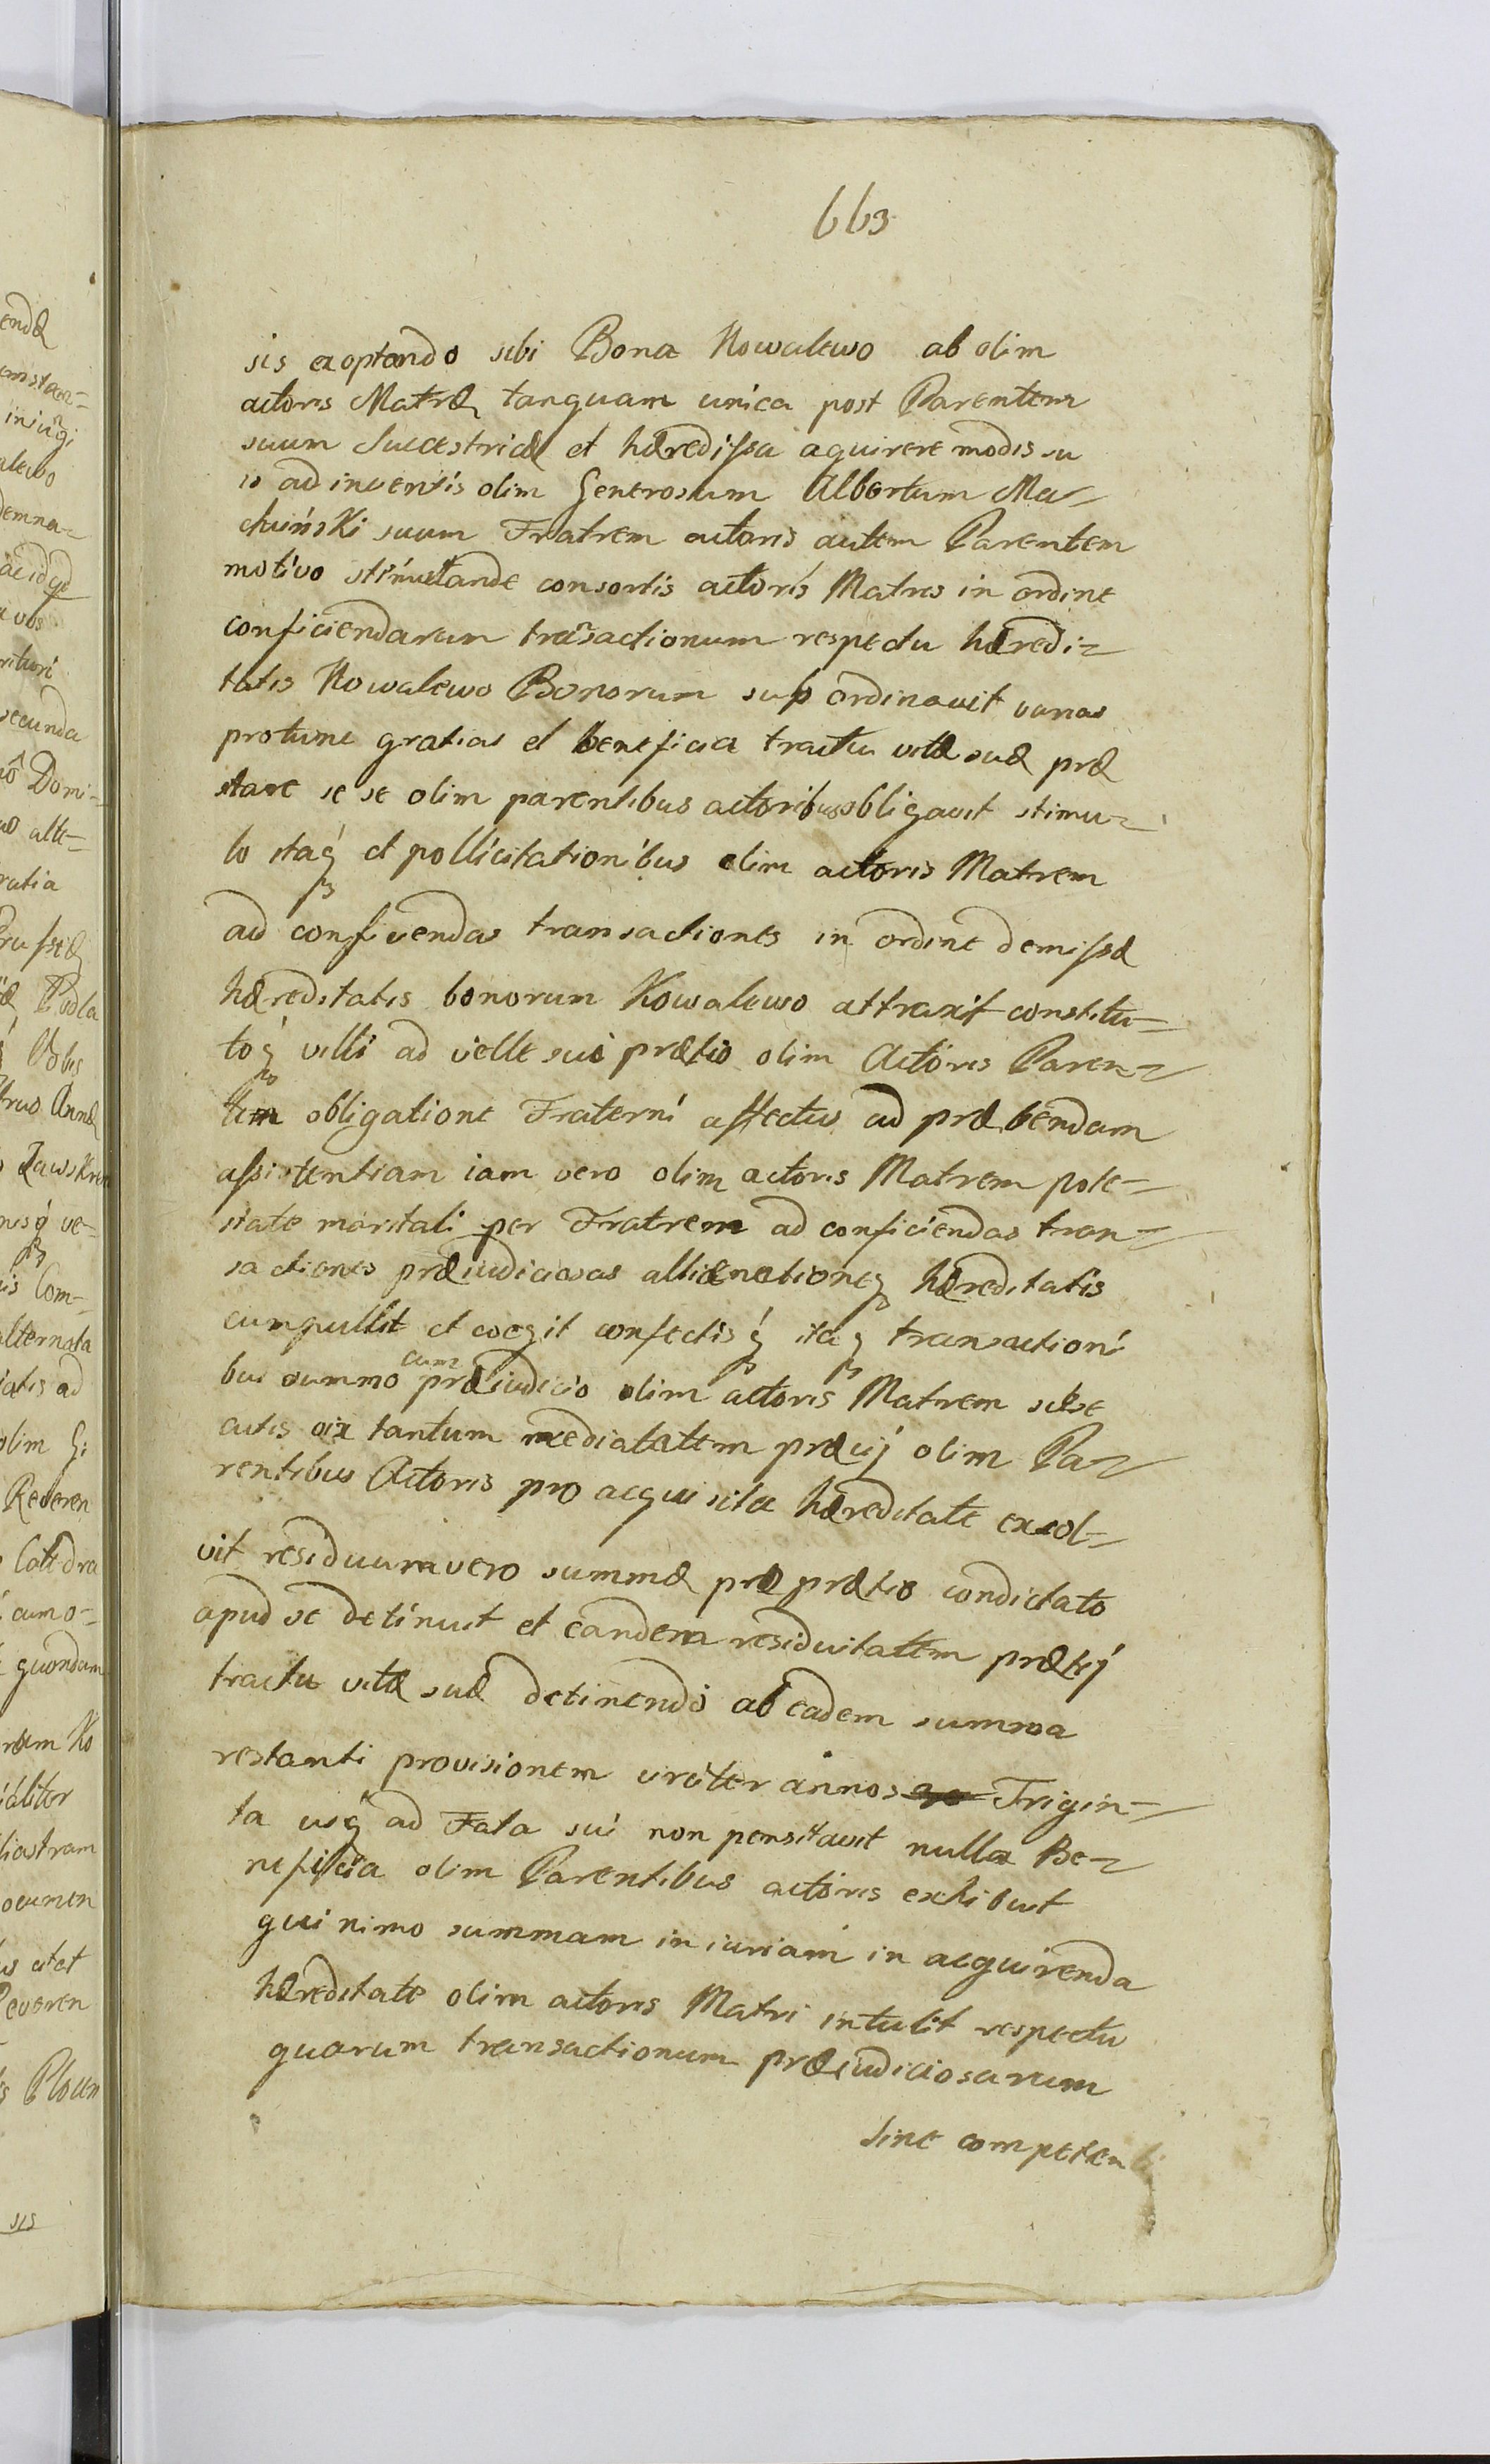 663
sis exoptando sibi Bona Kowalewo ab olim
actoris Matræ tanquam unica post Parentem
suum Successtricæ et hæredissa aquirere modis su
is adinventis olim Generosum Albertum Ma-
chuński suum Fratrem actoris autem Parentem
motivo stimulandæ consortis actoris Matris in ordine
conficiendarum transactionum respectu hæredi-
tatis Kowalewo Bonorum sub ordinavit varias
protunc gratias et beneficia tractu vitæ suæ præ
stare se se olim parentibus actoribus obligavit stimu-
lo itaq et pollicitationibus olim actoris Matrem
ad conficiendas transactiones in ordine demissæ
hæreditatis bonorum Kowalewo attraxit constitu-
toq villi ad velle sui prætio olim Actoris Paren-
tem obligatione Fraterni affectus ad præbendam
assistentiam iam vero olim actoris Matrem pote-
state maritali per Fratrem ad conficiendas tran-
sactiones præiudiciosas alliænationeq hæreditatis
cumpullit et coegit confectisq itaq transactioni
bus summo cum præiudicio olim actoris Matrem subse
cutis vix tantum mediatatem præcij olim Pa-
rentibus Actoris pro acquisita hæreditate exsol-
vit residuum vero summæ præ prætio condictato
apud se detinuit et eandem residuitatem prætij
tractu vitæ suæ detinendo ab eadem summa
restanti provisionem circiter annos Trigin-
ta usq ad Fata sui non pensitavit nulla Be-
neficia olim Parentibus actoris exhibuit
quinimo summam iniuriam in acquirenda
hæreditate olim actoris Matri intulit respectu
quarum transactionum præiudiciosarum
sine competenti